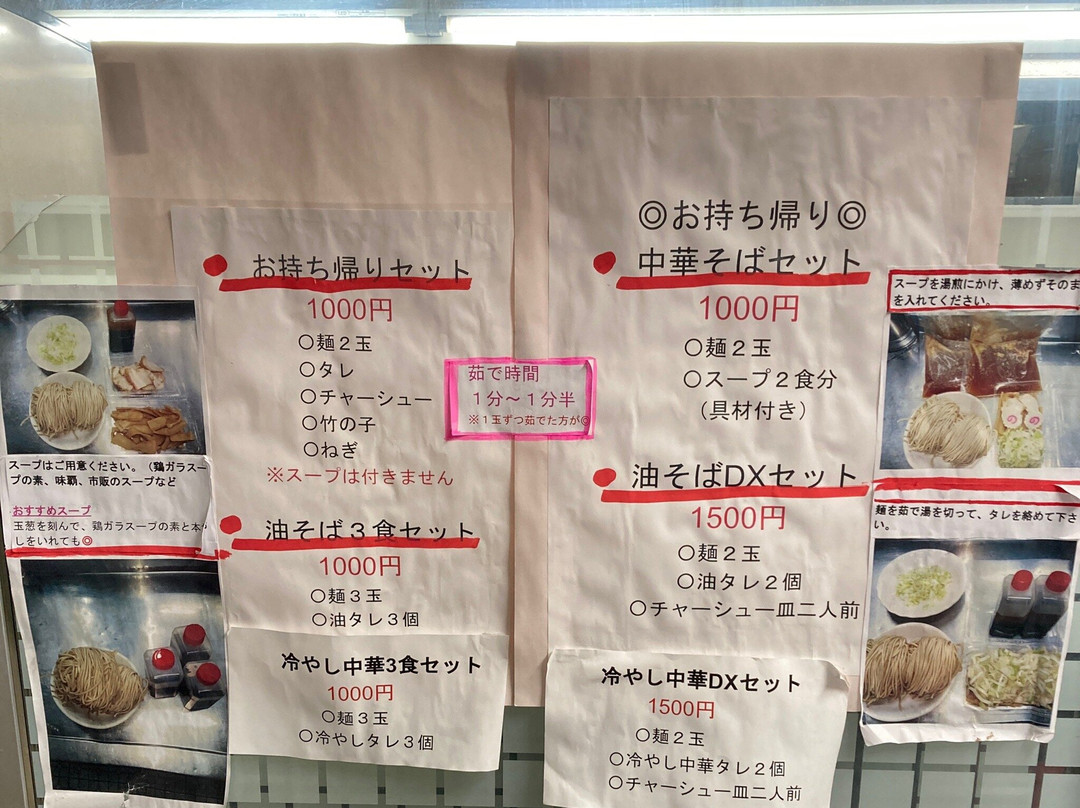 お持ち帰りセット
1000円
○麺２玉
○タレ
○チャーシュー
○竹の子
○ねぎ
※スープは付きません
油そば３食セット
1000円
○麺３玉
○油タレ３個
冷やし中華3食セット
1000円
○麺３玉
○冷やしタレ３個
スープはご用意ください。（鶏ガラスー
プの素、味覇、市販のスープなど
おすすめスープ
玉葱を刻んで、鶏ガラスープの素と本
しをいれても◎
茹で時間
１分～１分半
※１玉ずつ茹でた方が◎
◎お持ち帰り◎
中華そばセット
1000円
○麺２玉
○スープ２食分
（具材付き）
油そばDXセット
1500円
○麺２玉
○油タレ２個
○チャーシュー一皿二人前
冷やし中華DXセット
1500円
○麺２玉
○冷やし中華タレ２個
○チャーシュー一皿二人前
スープを湯煎にかけ、薄めずそのま
を入れてください。
麺を茹で湯を切って、タレを絡めて下さ
い。